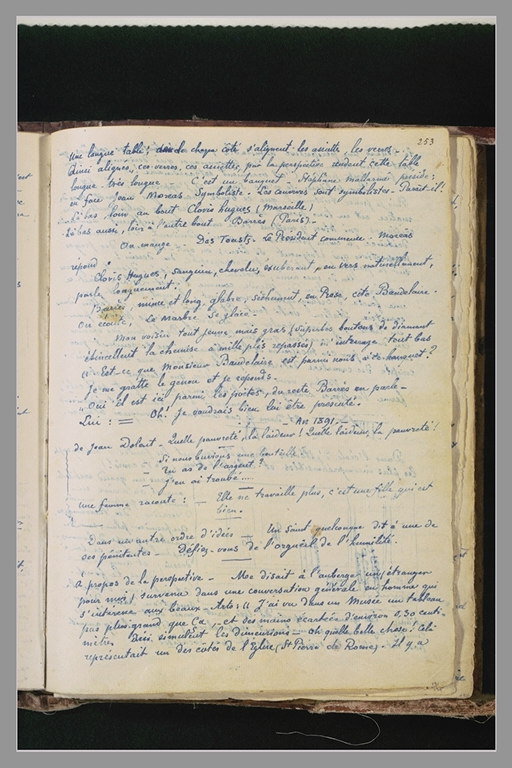 253
Une longue table; de chaque côté s'alignent les assiettes les verres.
Ainsi alignés, ces verres, ces assiettes, par la perspective rendent cette table
longue très longue. C'est un banquet. Stéphane Mallarmé préside;
en face Jean Moréas Symboliste. Les convives sont symbolistes. Parait-il!
Là bas loin au bout Clovis Hugues (Marseille)
Là bas aussi, loin à l'autre bout Barrès (Paris) -
On mange Des Toasts. Le Président commence. Moréas
répond.
Clovis Hugues, sanguin, chevelu, exubérant, en vers naturellement,
parle longuement.
Barrès mince et long, glabre, sèchement, en Prose, cite Baudelaire.
On écoute, le marbre se glace.
Mon voisin tout jeune mais gras (superbes boutons de diamant
étincellent la chemise à mille plis repassés) interroge tout bas
" Est-ce que Monsieur Baudelaire est parmi nous à ce banquet?
Je me gratte le genou et je reponds.
" Oui il est ici parmi les poètes, du reste Barrès en parle -
Lui: = Oh! Je voudrais bien lui être présenté.
An 1891. -
de Jean Dolent - Quelle pauvreté, la laideur! Quelle laideur, la pauvreté!
Si nous buvions une bouteille
Tu as de l'argent?
J'en ai trouvé....
Une femme raconte: - Elle ne travaille plus, c'est une fille qui est
bien.
Dans un autre ordre d'idées - Un Saint quelconque dit à une de
ses pénitentes - Défiez-vous de l'orgueil de l'humilité.
A propos de la perspective - Moe disait à l'auberge un étranger
pour moi survenu dans une conversation générale en homme qui
s'intéresse aux beaux-Arts: " J'ai vu dans un Musée un tableau
pas plus grand que Ça - et des mains écartées d'environ 0,30 centi-
mètres dessi simulèrent les dimensions = Oh quelle belle chose! Cela
représentait un des côtés de l'Eglise (St Pierre de Rome) - Il y a